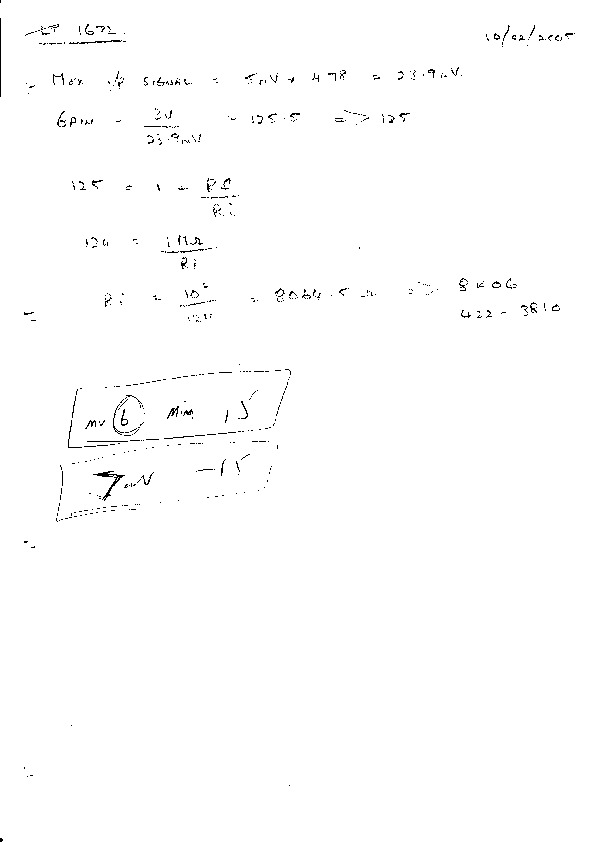 LP 1672
10/02/2005
Max i/p SIGNAL = 5mV x 4.78 = 23.9mV
GAIN = 3V / 23.9mV = 125.5 => 125
125 = 1 + Rf / Ri
124 = 1MΩ / Ri
Ri = 10⁶ / 124 = 8064.5 Ω => 8K06
422 - 3810
mV 6 Min 15
7mV -15